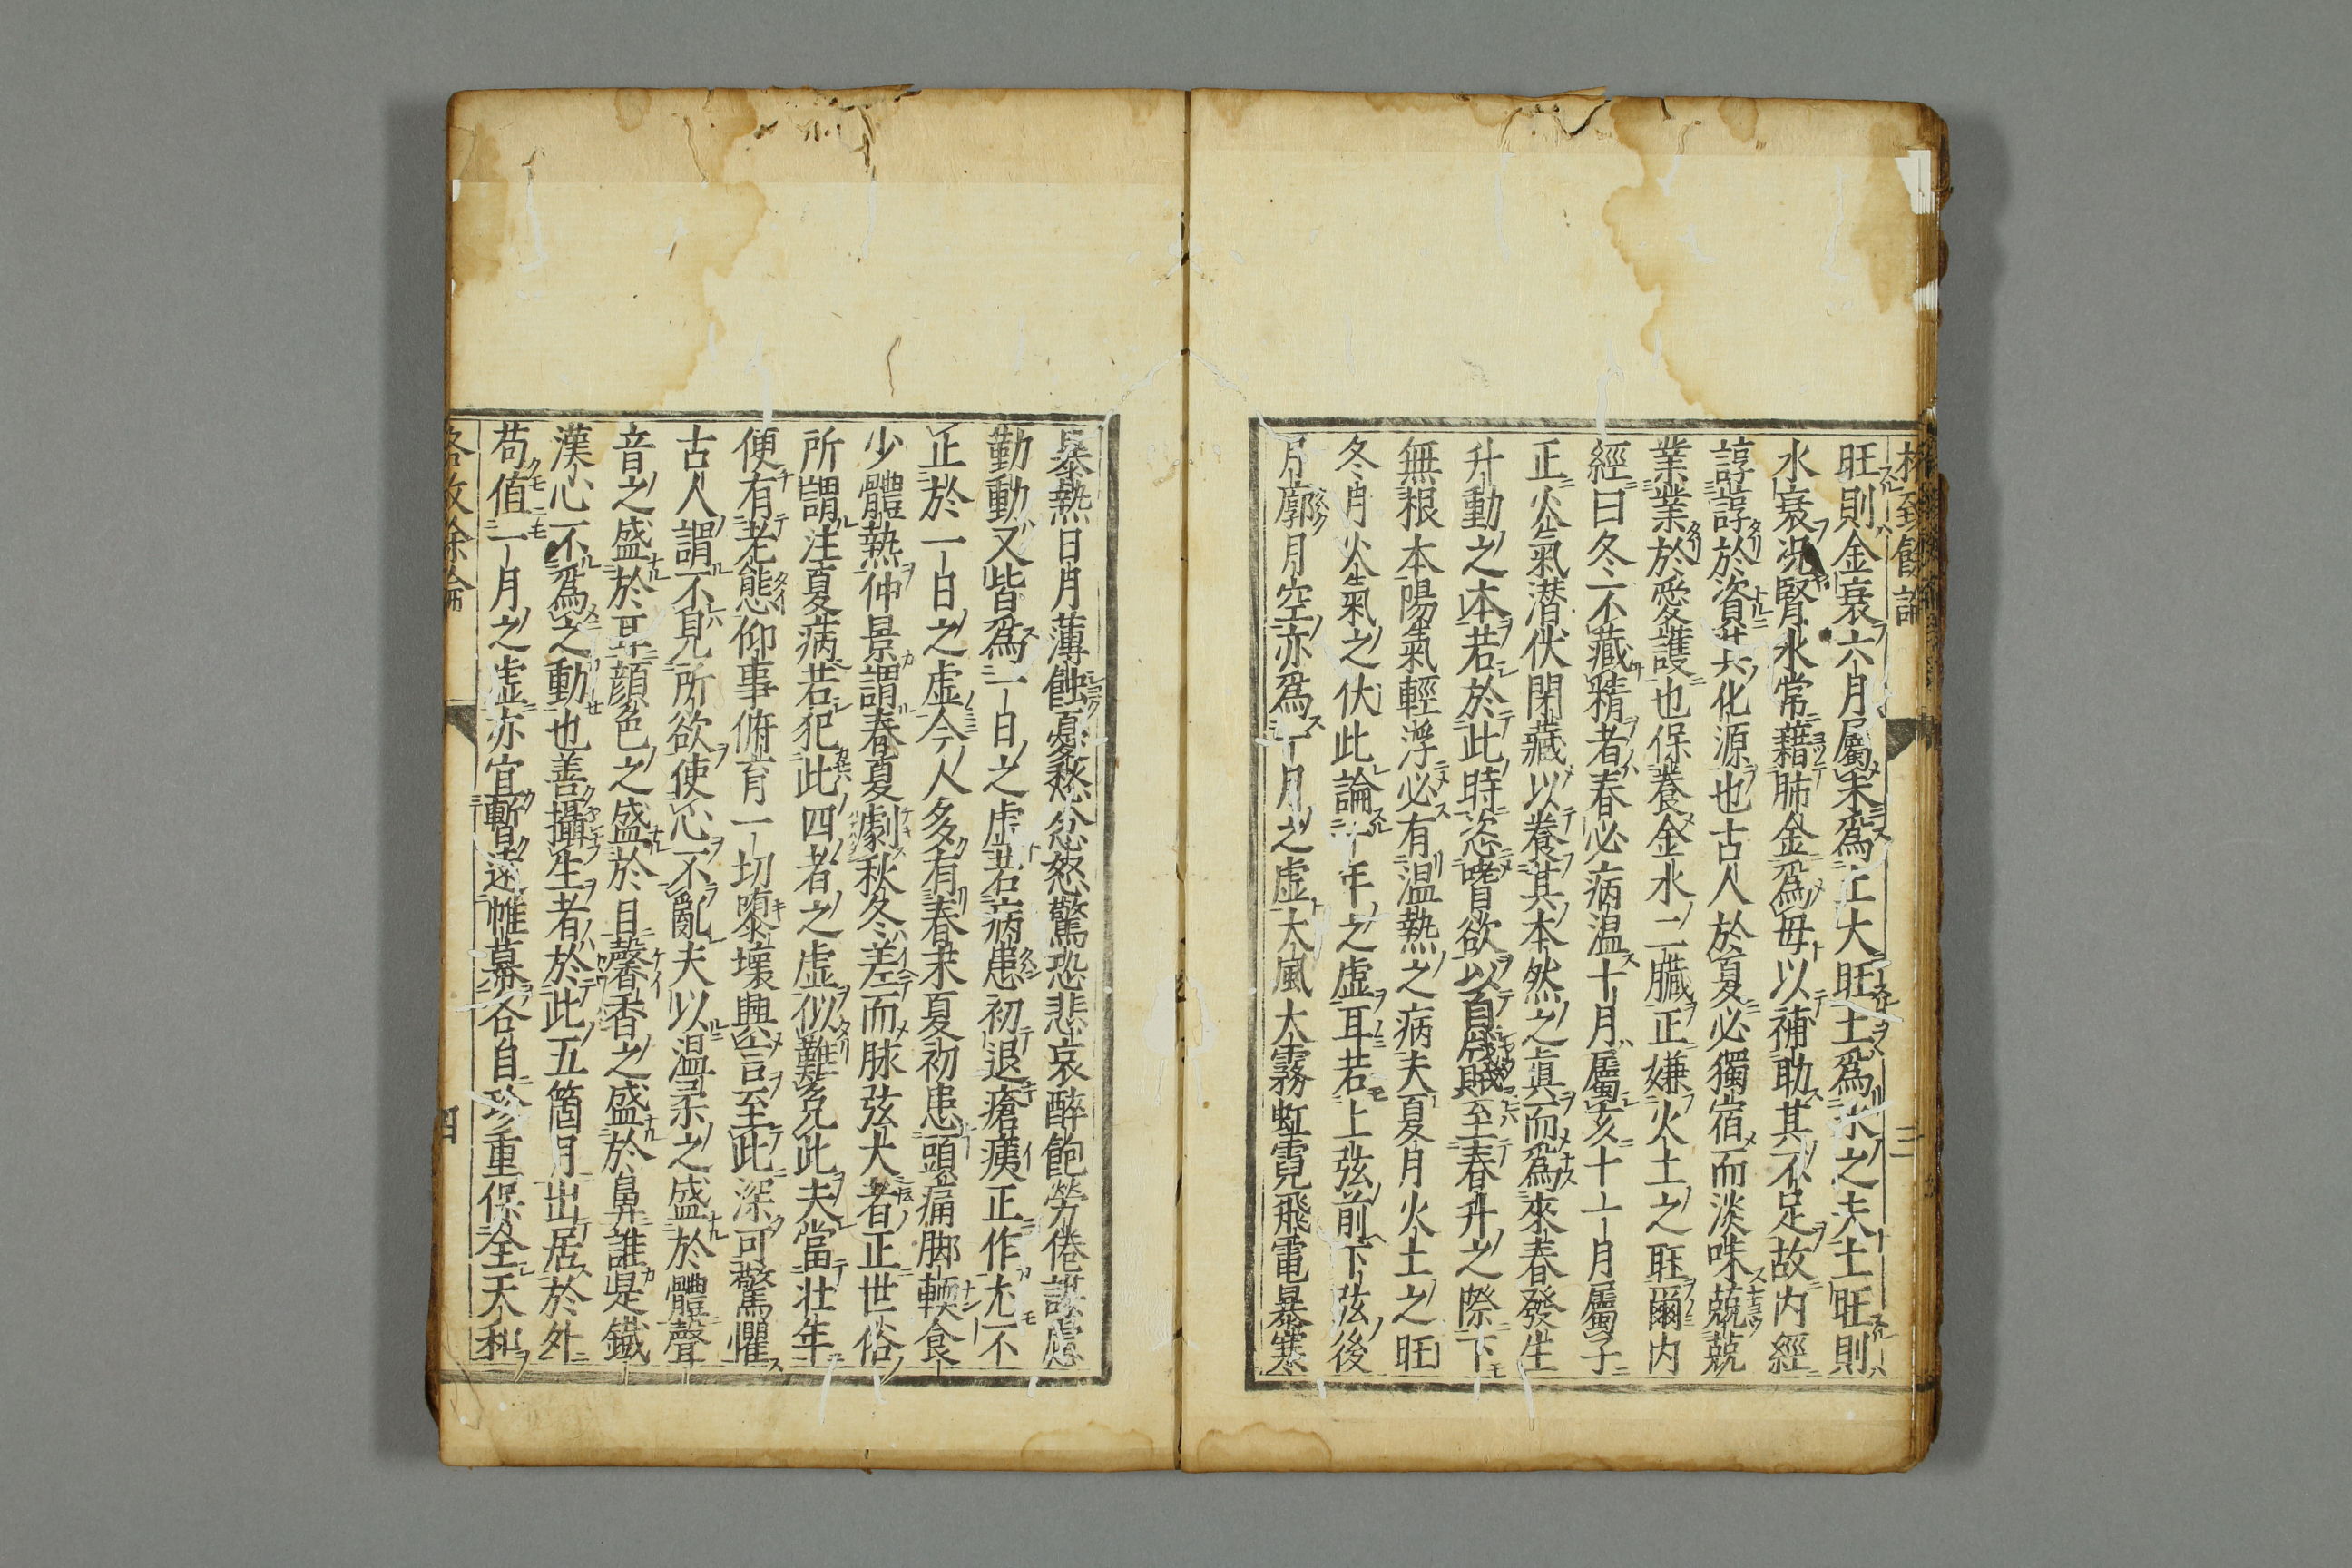 格致餘論
三
旺則金衰六月屬未爲土大旺土爲水之夫土旺則
水衰况腎水常藉肺金爲毋以補助其不足故内經
諄諄於資其化源也古人於夏必獨宿而淡味兢兢
業業於愛護也保養金水二臟正嫌火土之旺爾内
經曰冬不藏精者春必病温十月屬亥十一月屬子
正火氣潜伏閉藏以養其本然之眞而爲來春發生
升動之本若於此時恣嗜欲以戕賊至春升之際下
無根本陽氣輕浮必有温熱之病夫夏月火土之旺
冬月火氣之伏此論一年之虚耳若上弦前下弦後
月廓月空亦爲一月之虚大風大霧虹霓飛電暴寒
暴熱日月薄蝕憂愁忿怒驚恐悲哀醉飽勞倦謀慮
勤動又皆爲一日之虚若病患初退瘡痍正作尤不
止於一日之虚今人多有春末夏初患頭痛脚輭食
少體熱仲景謂春夏劇秋冬差而脉弦大者正世俗
所謂注夏病若犯此四者之虚似難免此夫當壮年
便有老態仰事俯育一切隳壊興言至此深可驚懼
古人謂不見所欲使心不亂夫以温柔之盛於體聲
音之盛於耳顔色之盛於目馨香之盛於鼻誰是鐵
漢心不爲之動也善攝生者於此五箇月出居於外
苟值一月之虚亦宜暫遠帷幕各自珍重保全天和
格致餘論
四